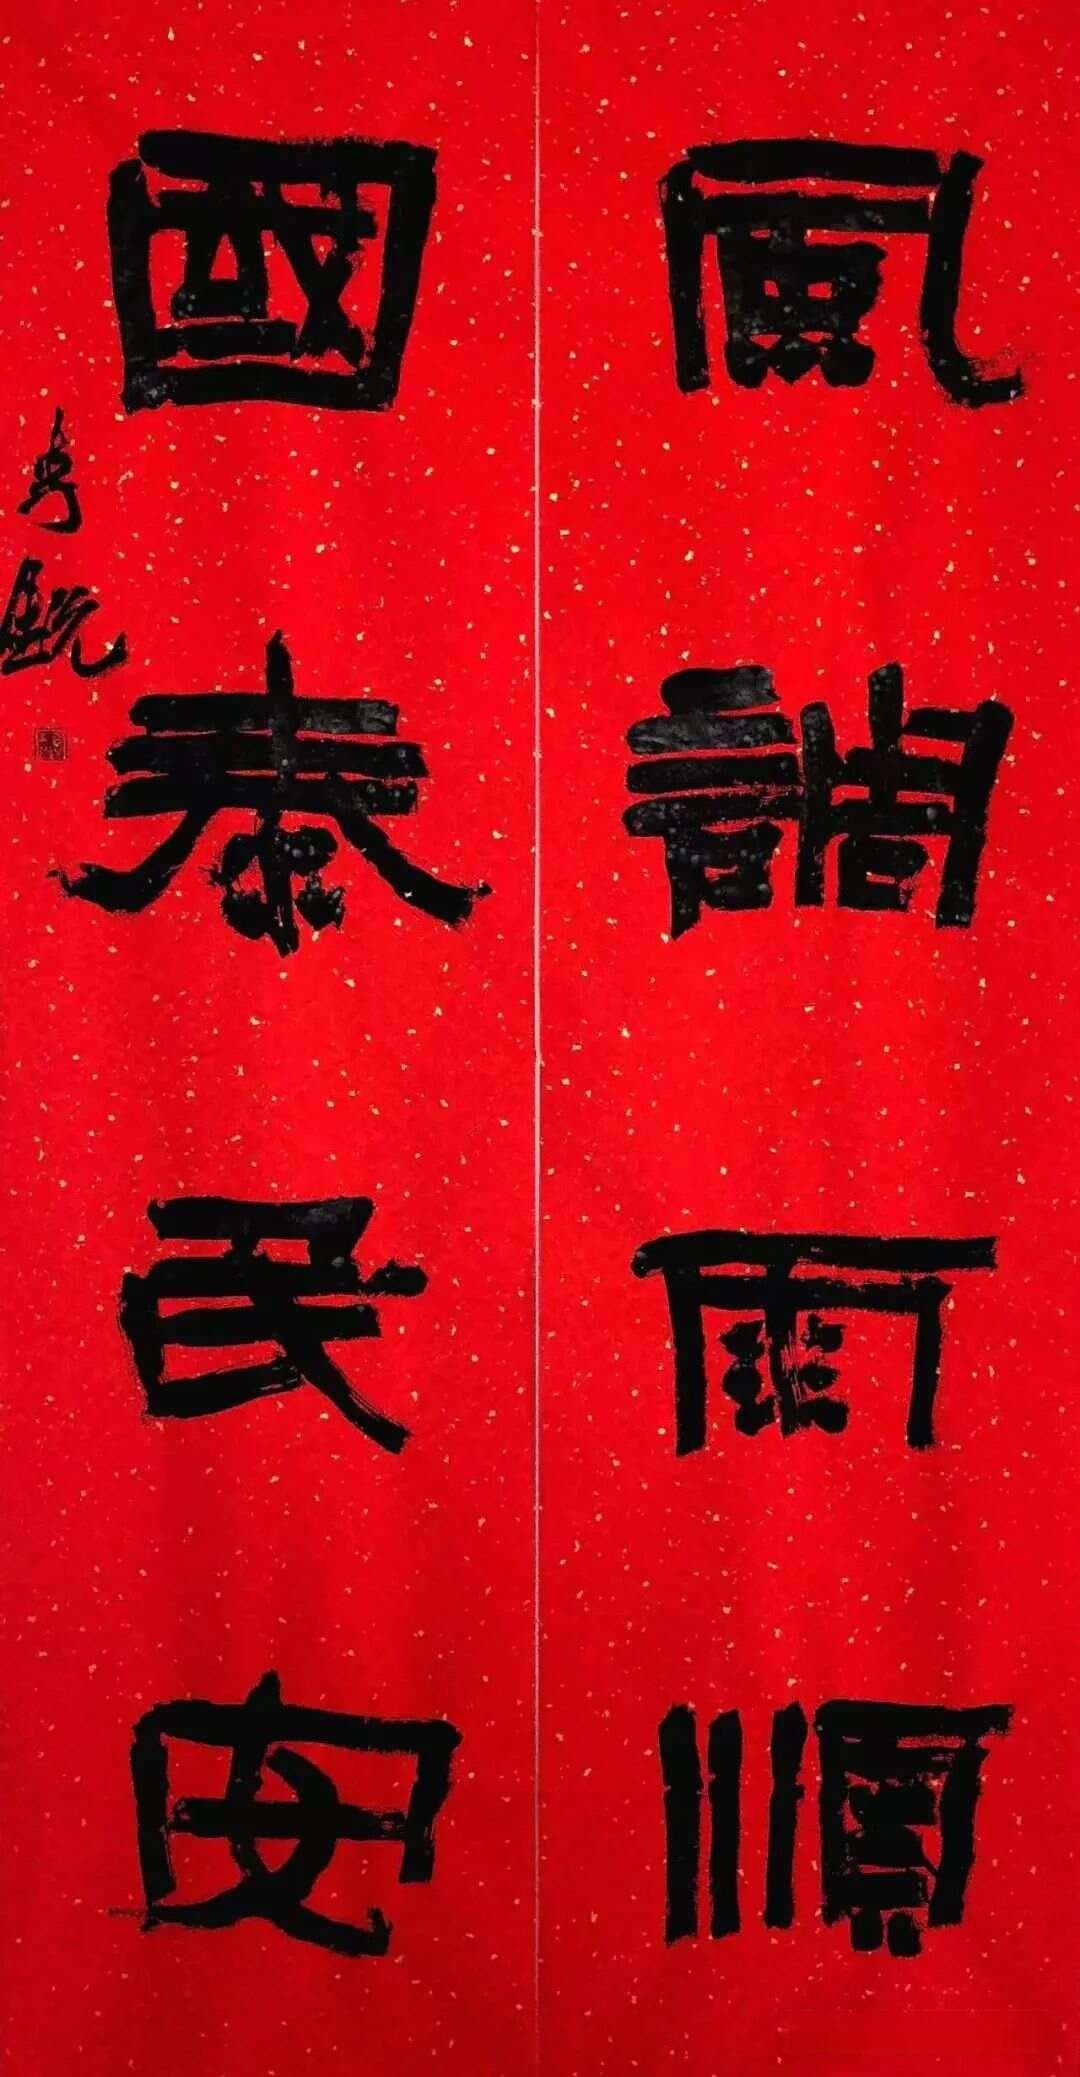 風調雨順
國泰民安